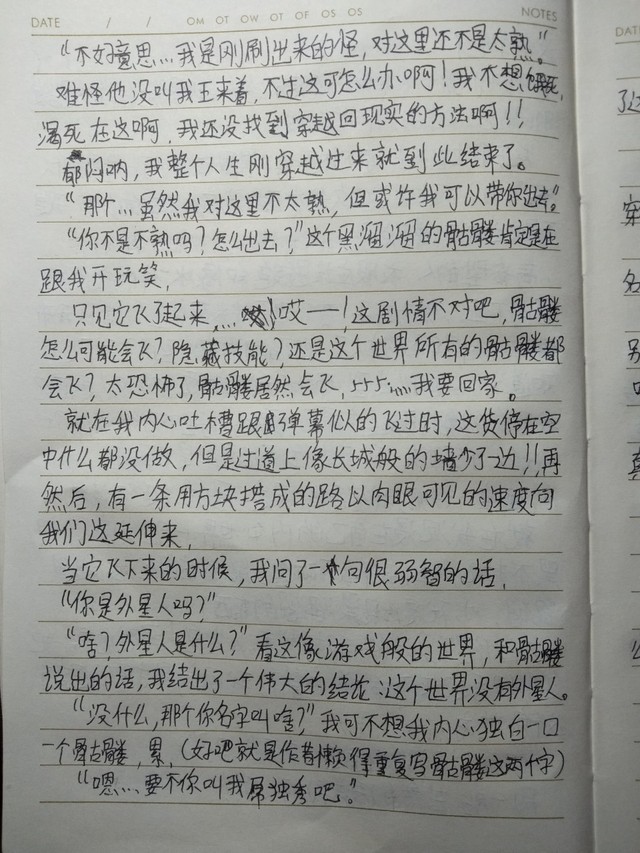 DATE / / OM OT OW OT OF OS OS NOTES
DATE
“不好意思…我是刚刷出来的怪，对这里还不是太熟。”
难怪他没叫我王来着，不过这可怎么办啊！我不想饿死，
渴死在这啊，我还没找到穿越回现实的方法啊！！
郁闷呐，我整个人生刚穿越过来就到此结束了。
“那个…虽然我对这里不太熟，但或许我可以带你出去。”
“你不是不熟吗？怎么出去？”这个黑溜溜的骷髅肯定是在
跟我开玩笑，
只见它飞起来，…哎——！这剧情不对吧，骷髅
怎么可能会飞？隐藏技能？还是这个世界所有的骷髅都
会飞？太恐怖了，骷髅居然会飞，555……我要回家。
就在我内心吐槽跟弹幕似的飞过时，这货停在空
中什么都没做，但是过道上像长城般的墙少了一边！！再
然后，有一条用方块搭成的路以肉眼可见的速度向
我们这延伸来，
当它飞下来的时候，我问了一句很弱智的话，
“你是外星人吗？”
“啥？外星人是什么？”看这像游戏般的世界，和骷髅
说出的话，我结出了一个伟大的结论：这个世界没有外星人。
“没什么，那个你名字叫啥？”我可不想我内心独白一口
一个骷髅，累，（好吧就是作者懒得重复写骷髅这两个字）
“嗯…要不你叫我屌独秀吧。”